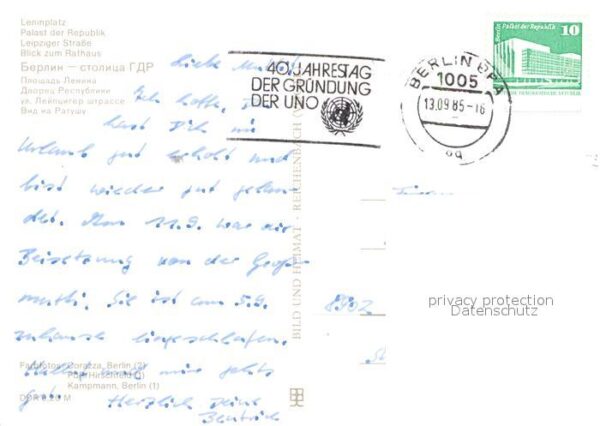 Leninplatz
Palast der Republik
Leipziger Straße
Blick zum Rathaus
Берлин — столица ГДР
Площадь Ленина
Дворец Республики
ул. Лейпцигер штрассе
Вид на Ратушу
40. JAHRESTAG
DER GRÜNDUNG
DER UNO
BERLIN BPA
1005
13.09.85-16
Berlin Palast der Republik 10
Liebe
Ich hoffe,
hast Dich im
Urlaub gut erholt und
bist wieder gut gelan-
det. Am 11.9. war die
Beisetzung von der Groß-
mutti. Sie ist am 5.9.
zuhause eingeschlafen.
mir gehts
gut. Herzlich Deine
BILD UND HEIMAT · REICHENBACH (V
8902
privacy protection
Datenschutz
Farbfotos: Corazza, Berlin (2)
Kampmann, Berlin (1)
DDR 0,20 M